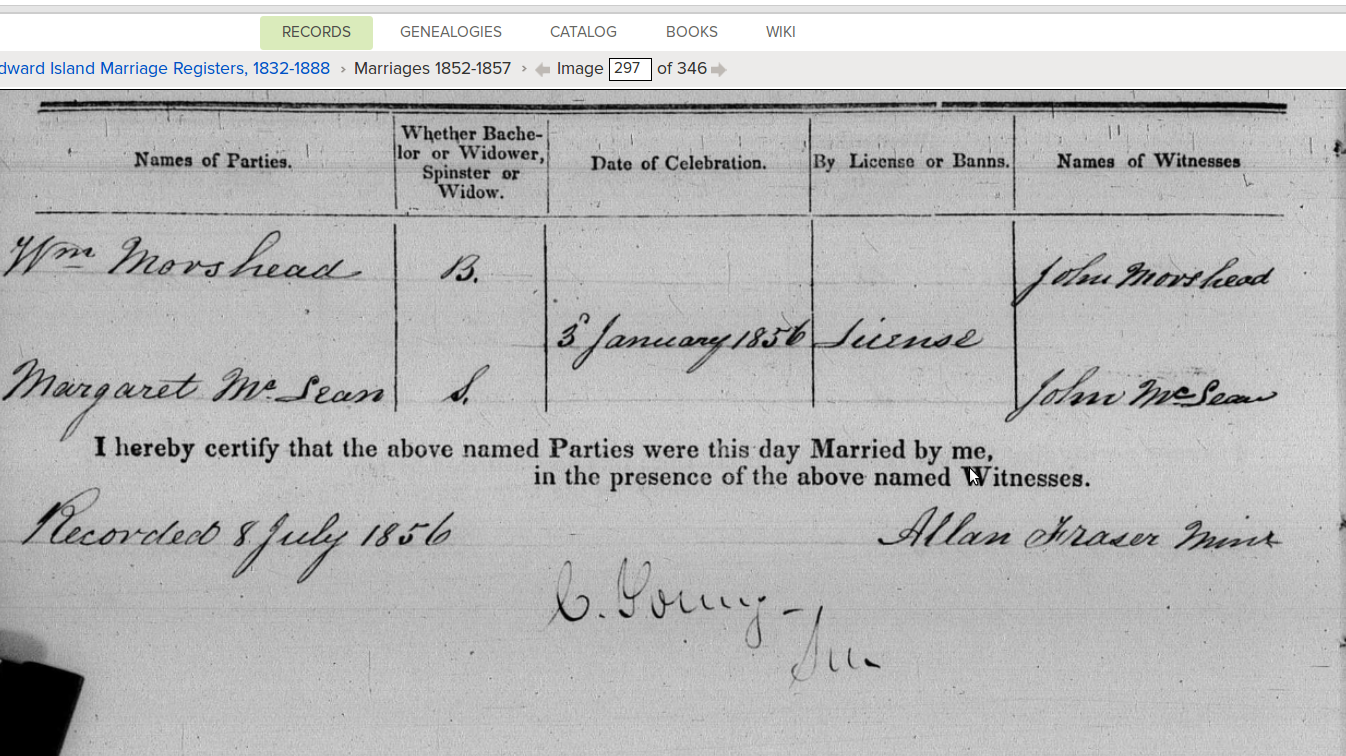 RECORDS GENEALOGIES CATALOG BOOKS WIKI
dward Island Marriage Registers, 1832-1888 › Marriages 1852-1857 › Image 297 of 346
Names of Parties. Whether Bache-lor or Widower, Spinster or Widow. Date of Celebration. By License or Banns. Names of Witnesses
Wm Morshead B. John Morshead
3d January 1856 License
Margaret Mc Lean S. John McLean
I hereby certify that the above named Parties were this day Married by me,
in the presence of the above named Witnesses.
Recorded 8 July 1856 Allan Fraser Minr
C.